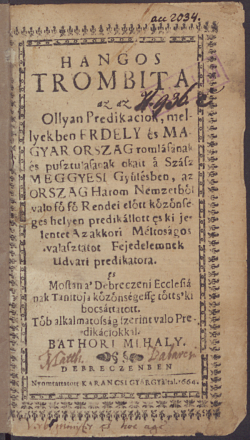 acc 2034.
HANGOS
TROMBITA
az az
Ollyan Predikaciok, mel-
lyekben ERDELY és MA-
GYAR ORSZAG romlásának
és pusztulásának okait á Szász
MEGGYESI Gyülésben, az
ORSZAG Három Nemzetböl
való fö fö Rendei elött közönsé-
ges helyen predikállott es ki je-
lentet Azakkori Méltóságos
választatot Fejedelemnek
Udvari predikátora.
és
Mostan a' Debreczeni Ecclesiá-
nak Tanitoja
bocsáttatott.
Töb alkalmatosság szerint valo Pre-
dikációkkal.
BATHORI MIHALY.
DEBRECZENBEN
Nyomtattatott KARANCSI GYÖRGY által.